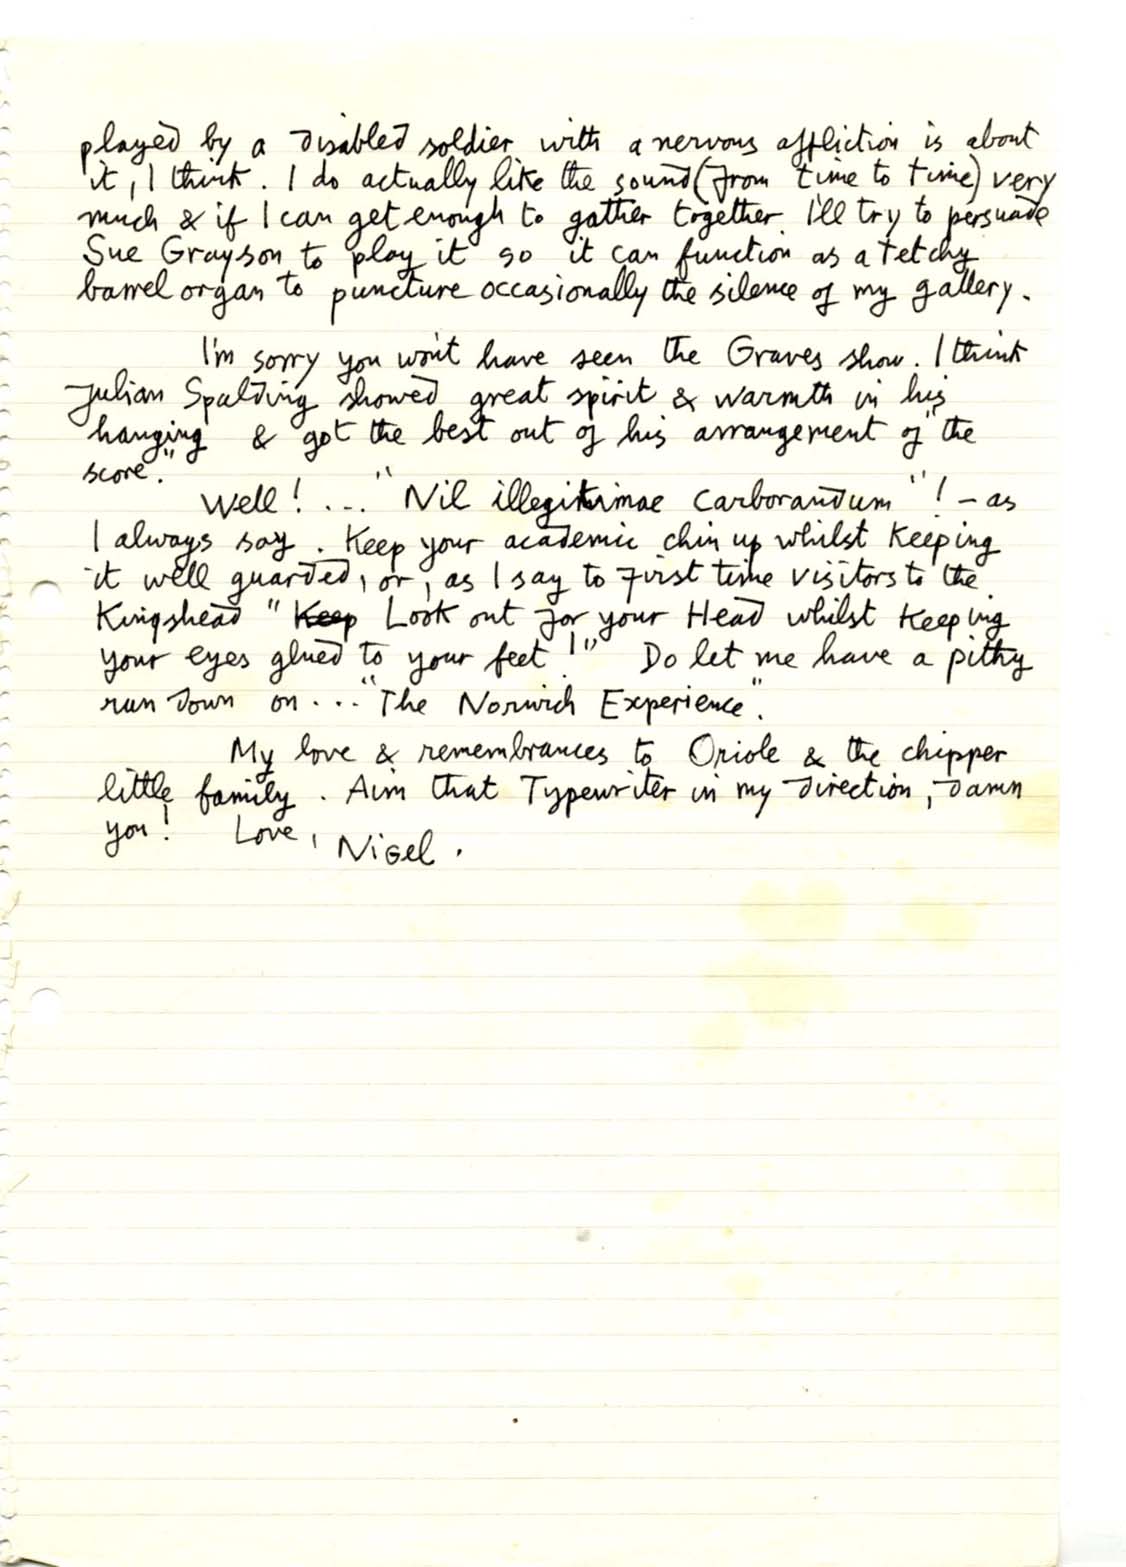 played by a disabled soldier with a nervous affliction is about
it, I think. I do actually like the sound (from time to time) very
much & if I can get enough to gather together I'll try to persuade
Sue Grayson to play it so it can function as a tetchy
barrel organ to puncture occasionally the silence of my gallery.
I'm sorry you won't have seen the Graves show. I think
Julian Spalding showed great spirit & warmth in his
hanging & got the best out of his arrangement of "the
score."
Well! ... "Nil illegitimae Carborandum"! – as
I always say. Keep your academic chin up whilst keeping
it well guarded, or, as I say to first time visitors to the
Kingshead "Keep Look out for your Head whilst keeping
your eyes glued to your feet!" Do let me have a pithy
run down on ... "The Norwich Experience".
My love & remembrances to Oriole & the chipper
little family. Aim that Typewriter in my direction, damn
you! Love, Nigel.